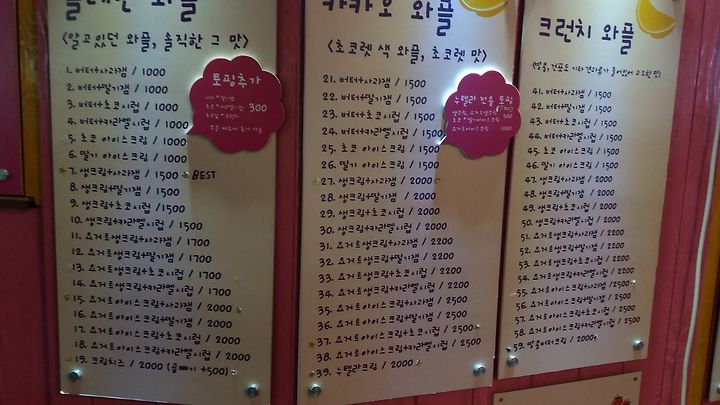 플레인 와플
<알고있던 와플, 솔직한 그 맛>
1. 버터+사과잼 / 1000
2. 버터+딸기잼 / 1000
3. 버터+초코시럽 / 1000
4. 버터+카라멜시럽 / 1000
5. 초코 아이스크림 / 1000
6. 딸기 아이스크림 / 1000
7. 생크림+사과잼 / 1500 BEST
8. 생크림+딸기잼 / 1500
9. 생크림+초코시럽 / 1500
10. 생크림+카라멜시럽 / 1500
11. 요거트생크림+사과잼 / 1700
12. 요거트생크림+딸기잼 / 1700
13. 요거트생크림+초코시럽 / 1700
14. 요거트생크림+카라멜시럽 / 1700
15. 요거트아이스크림+사과잼 / 2000
16. 요거트아이스크림+딸기잼 / 2000
17. 요거트아이스크림+초코시럽 / 2000
18. 요거트아이스크림+카라멜시럽 / 2000
19. 크림치즈 / 2000 (곱빼기 +500)
토핑추가
300
카카오 와플
<초코렛 색 와플, 초코렛 맛>
21. 버터+사과잼 / 1500
22. 버터+딸기잼 / 1500
23. 버터+초코시럽 / 1500
24. 버터+카라멜시럽 / 1500
25. 초코 아이스크림 / 1500
26. 딸기 아이스크림 / 1500
27. 생크림+사과잼 / 2000
28. 생크림+딸기잼 / 2000
29. 생크림+초코시럽 / 2000
30. 생크림+카라멜시럽 / 2000
31. 요거트생크림+사과잼 / 2200
32. 요거트생크림+딸기잼 / 2200
33. 요거트생크림+초코시럽 / 2200
34. 요거트생크림+카라멜시럽 / 2200
35. 요거트아이스크림+사과잼 / 2500
36. 요거트아이스크림+딸기잼 / 2500
37. 요거트아이스크림+초코시럽 / 2500
38. 요거트아이스크림+카라멜시럽 / 2500
39. 누텔라크림 / 2000
누텔라 전용 토핑
500
요거트아이스크림 1000
크런치 와플
41. 버터+사과잼 / 1500
42. 버터+딸기잼 / 1500
43. 버터+초코시럽 / 1500
44. 버터+카라멜시럽 / 1500
45. 초코 아이스크림 / 1500
46. 딸기 아이스크림 / 1500
47. 생크림+사과잼 / 2000
48. 생크림+딸기잼 / 2000
49. 생크림+초코시럽 / 2000
50. 생크림+카라멜시럽 / 2000
51. 요거트생크림+사과잼 / 2200
52. 요거트생크림+딸기잼 / 2200
53. 요거트생크림+초코시럽 / 2200
54. 요거트생크림+카라멜시럽 / 2200
55. 요거트아이스크림+사과잼 / 2500
56. 요거트아이스크림+딸기잼 / 2500
57. 요거트아이스크림+초코시럽 / 2500
58. 요거트아이스크림+카라멜시럽 / 2500
59. 땅콩버터크림 / 2000